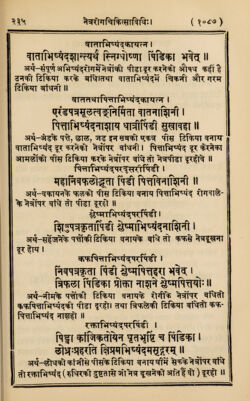 २३५ नेत्ररोगचिकित्साविधिः। (१०८७)
वाताभिष्यंदकायत्न।
वाताभिष्यंदशान्त्यर्थं स्निग्धोष्णा पिंडिका भवेत्॥
अर्थ-संपूर्ण अभिष्यंदरोगोंमें नेत्रोंकी पीडा दूर करनेकी औषध कहीं है
उनकी टिकिया करके बांधेतथा वाताभिष्यंदमें चिकनी और गरम
टिकिया बांधनी॥
वाततथापित्ताभिष्यंदकायत्न।
एरंडपत्रमूलत्वङ्निर्मिता वातनाशिनी॥
पित्ताभिष्यंदनाशाय धात्रीपिंडी सुखावहा॥
अर्थ-अंडके पत्ते, छाल, जड इन सबको एकत्र पीस टिकिया बनाय
वाताभिष्यंदरोगवाले के नेत्रोंपर बांधनी। पित्ताभिष्यंद दूर करनेको
आमलोंकी पीस टिकिया करके नेत्रोंपर बांधे तो नेत्रपीडा दूरहोवे॥
पित्ताभिष्यंदपरदूसरीपिंडी।
महानिंबफलोद्भूता पिंडी पित्तविनाशिनी॥
अर्थ-बकायनके फलको पीस टिकिया बनाय पित्ताभिष्यंद रोगवाले-
के नेत्रोंपर बांधे तो पीडा दूरहो॥
श्लेष्माभिष्यंदपरपिंडी।
शिग्रुपत्रकृतापिंडी श्लेष्माभिष्यंदनाशिनी॥
अर्थ-सहँजनेके पत्तोंकी टिकिया बनायके बांधे तो कफसे नेत्रदूखना
दूर हो॥
कफपित्ताभिष्यंदपरपिंडी।
निंबपत्रकृता पिंडी श्लेष्मपित्तहरा भवेत्।
त्रिफला पिंडिका प्रोक्ता नाशने श्लेष्मपित्तयोः॥
अर्थ-नीमके पत्तोंकी टिकिया बनायके रोगीके नेत्रोंपर बांधेतो
कफपित्ताभिष्यंदकी पीडा दूर हो। तथा त्रिफलेकी टिकिया बांधे तो
कफपित्ताभिष्यंद दूर हो॥
रक्ताभिष्यंदपरपिंडी।
पिष्ट्वा कांजिकतोयेन घृतभृष्टि च पिंडिका।
लोध्रः प्रहरति क्षिप्रमभिष्यंदमसृद्दरम्॥
अर्थ-लोधको कांजीमें पीस टिकिया बनाय घीमें सेकके नेत्रोंपर बांधे
तो रक्ताभिष्यंद (रुधिरकी दुष्टतासे जो नेत्र दूखनेको आते हैं वो) दूरहो॥